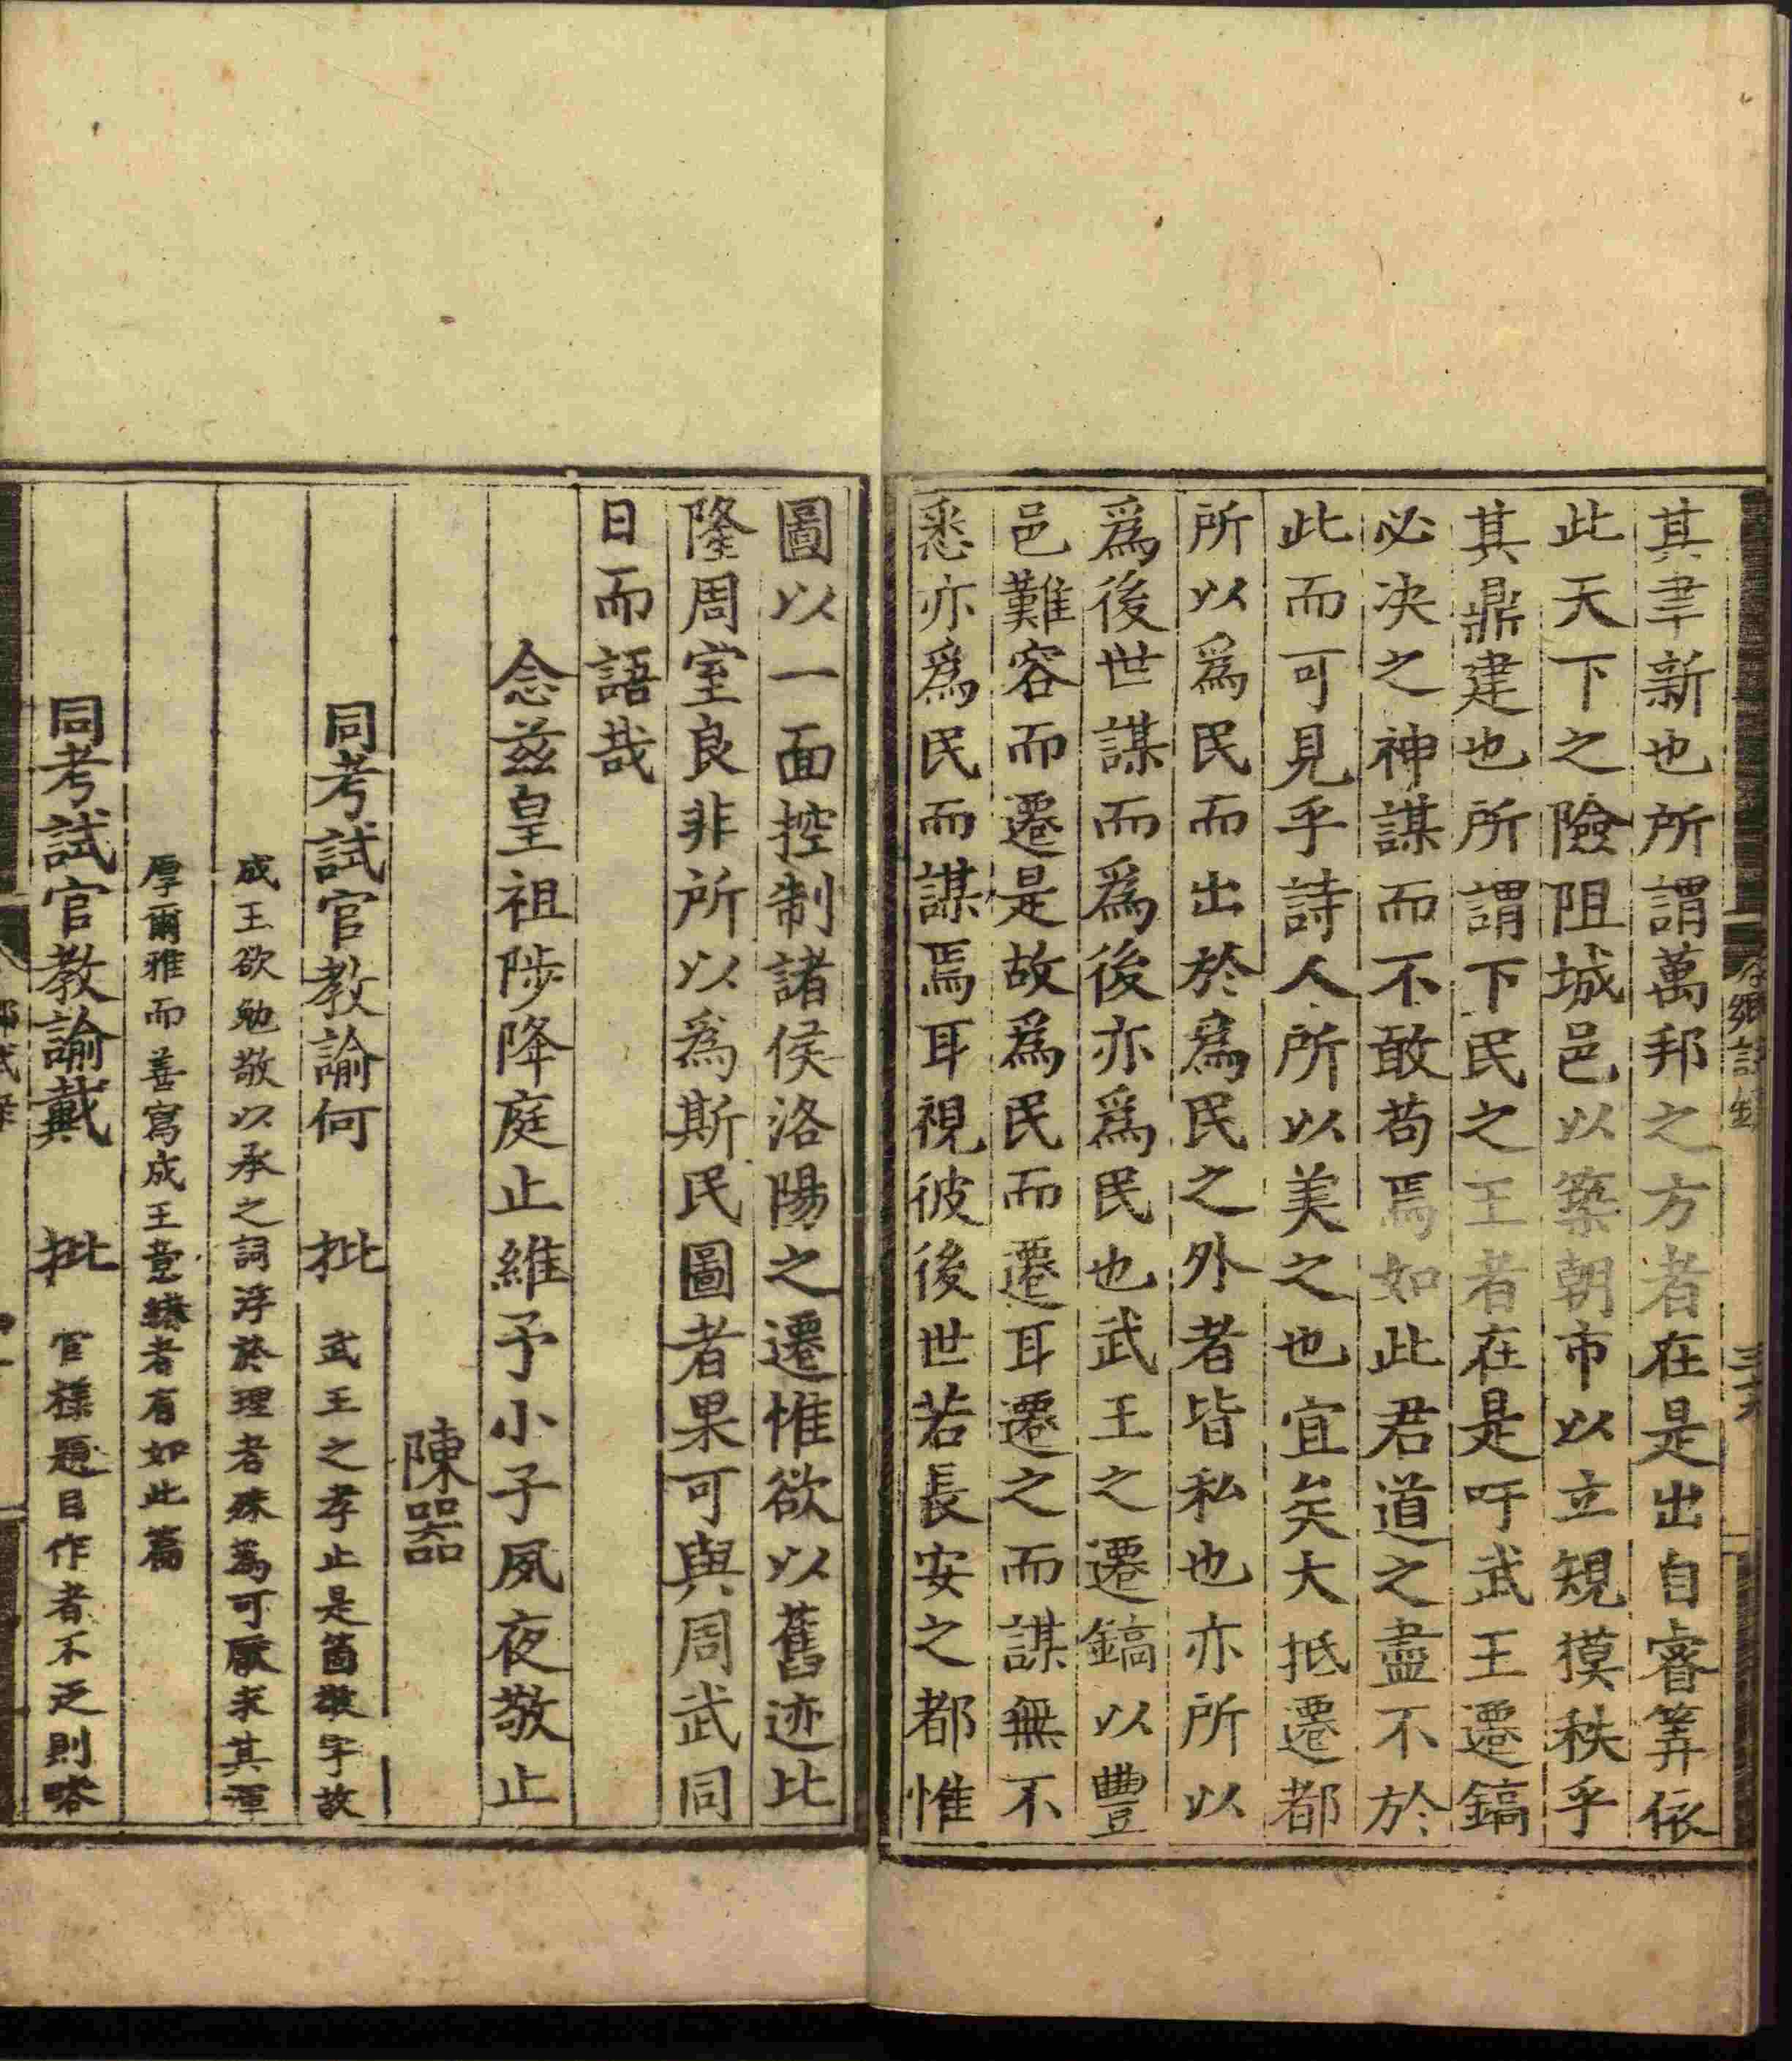 其聿新也所謂萬邦之方者在是出自睿筭依
此天下之險阻城邑以築朝市以立規摸秩乎
其鼎建也所謂下民之王者在是吁武王遷鎬
必决之神謀而不敢苟焉如此君道之盡不於
此而可見乎詩人所以美之也宜矣大抵遷都
所以爲民而出於爲民之外者皆私也亦所以
爲後世謀而爲後亦爲民也武王之遷鎬以豐
邑難容而遷是故爲民而遷耳遷之而謀無不
悉亦爲民而謀焉耳視彼後世若長安之都惟
圖以一面控制諸侯洛陽之遷惟欲以舊迹比
隆周室良非所以爲斯民圖者果可與周武同
日而語哉
念兹皇祖陟降庭止維予小子夙夜敬止
陳器
同考試官教諭何 批 武王之孝止是箇敬字故
成王欲勉敬以承之詞浮於理者殊爲可厭求其渾
厚爾雅而善寫成王意緒者有如此篇
同考試官教諭戴 批 官樣題目作者不乏則略